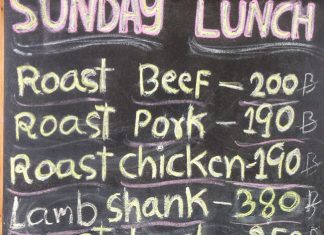 SUNDAY LUNCH
Roast Beef - 200 ฿
Roast Pork - 190 ฿
Roast chicken - 190 ฿
Lamb shank - 380 ฿